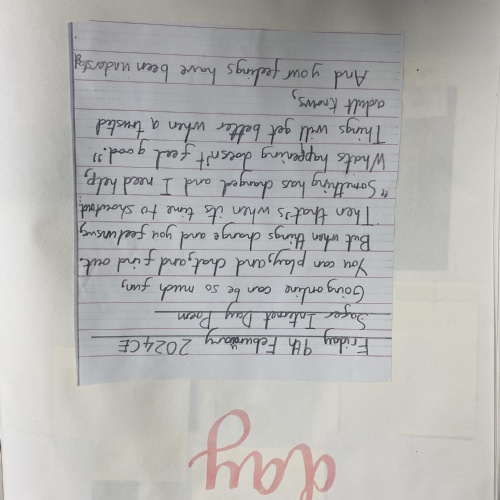 day
Friday 9th Feburary 2024CE
Safer Internet Day Poem
Going online can be so much fun,
You can play, and chat, and find out.
But when things change and you feel unsure,
Then that's when its time to shout out
"Something has changed and I need help,
Whats happening doesn't feel good."
Things will get better when a trusted
adult knows,
And your feelings have been understood